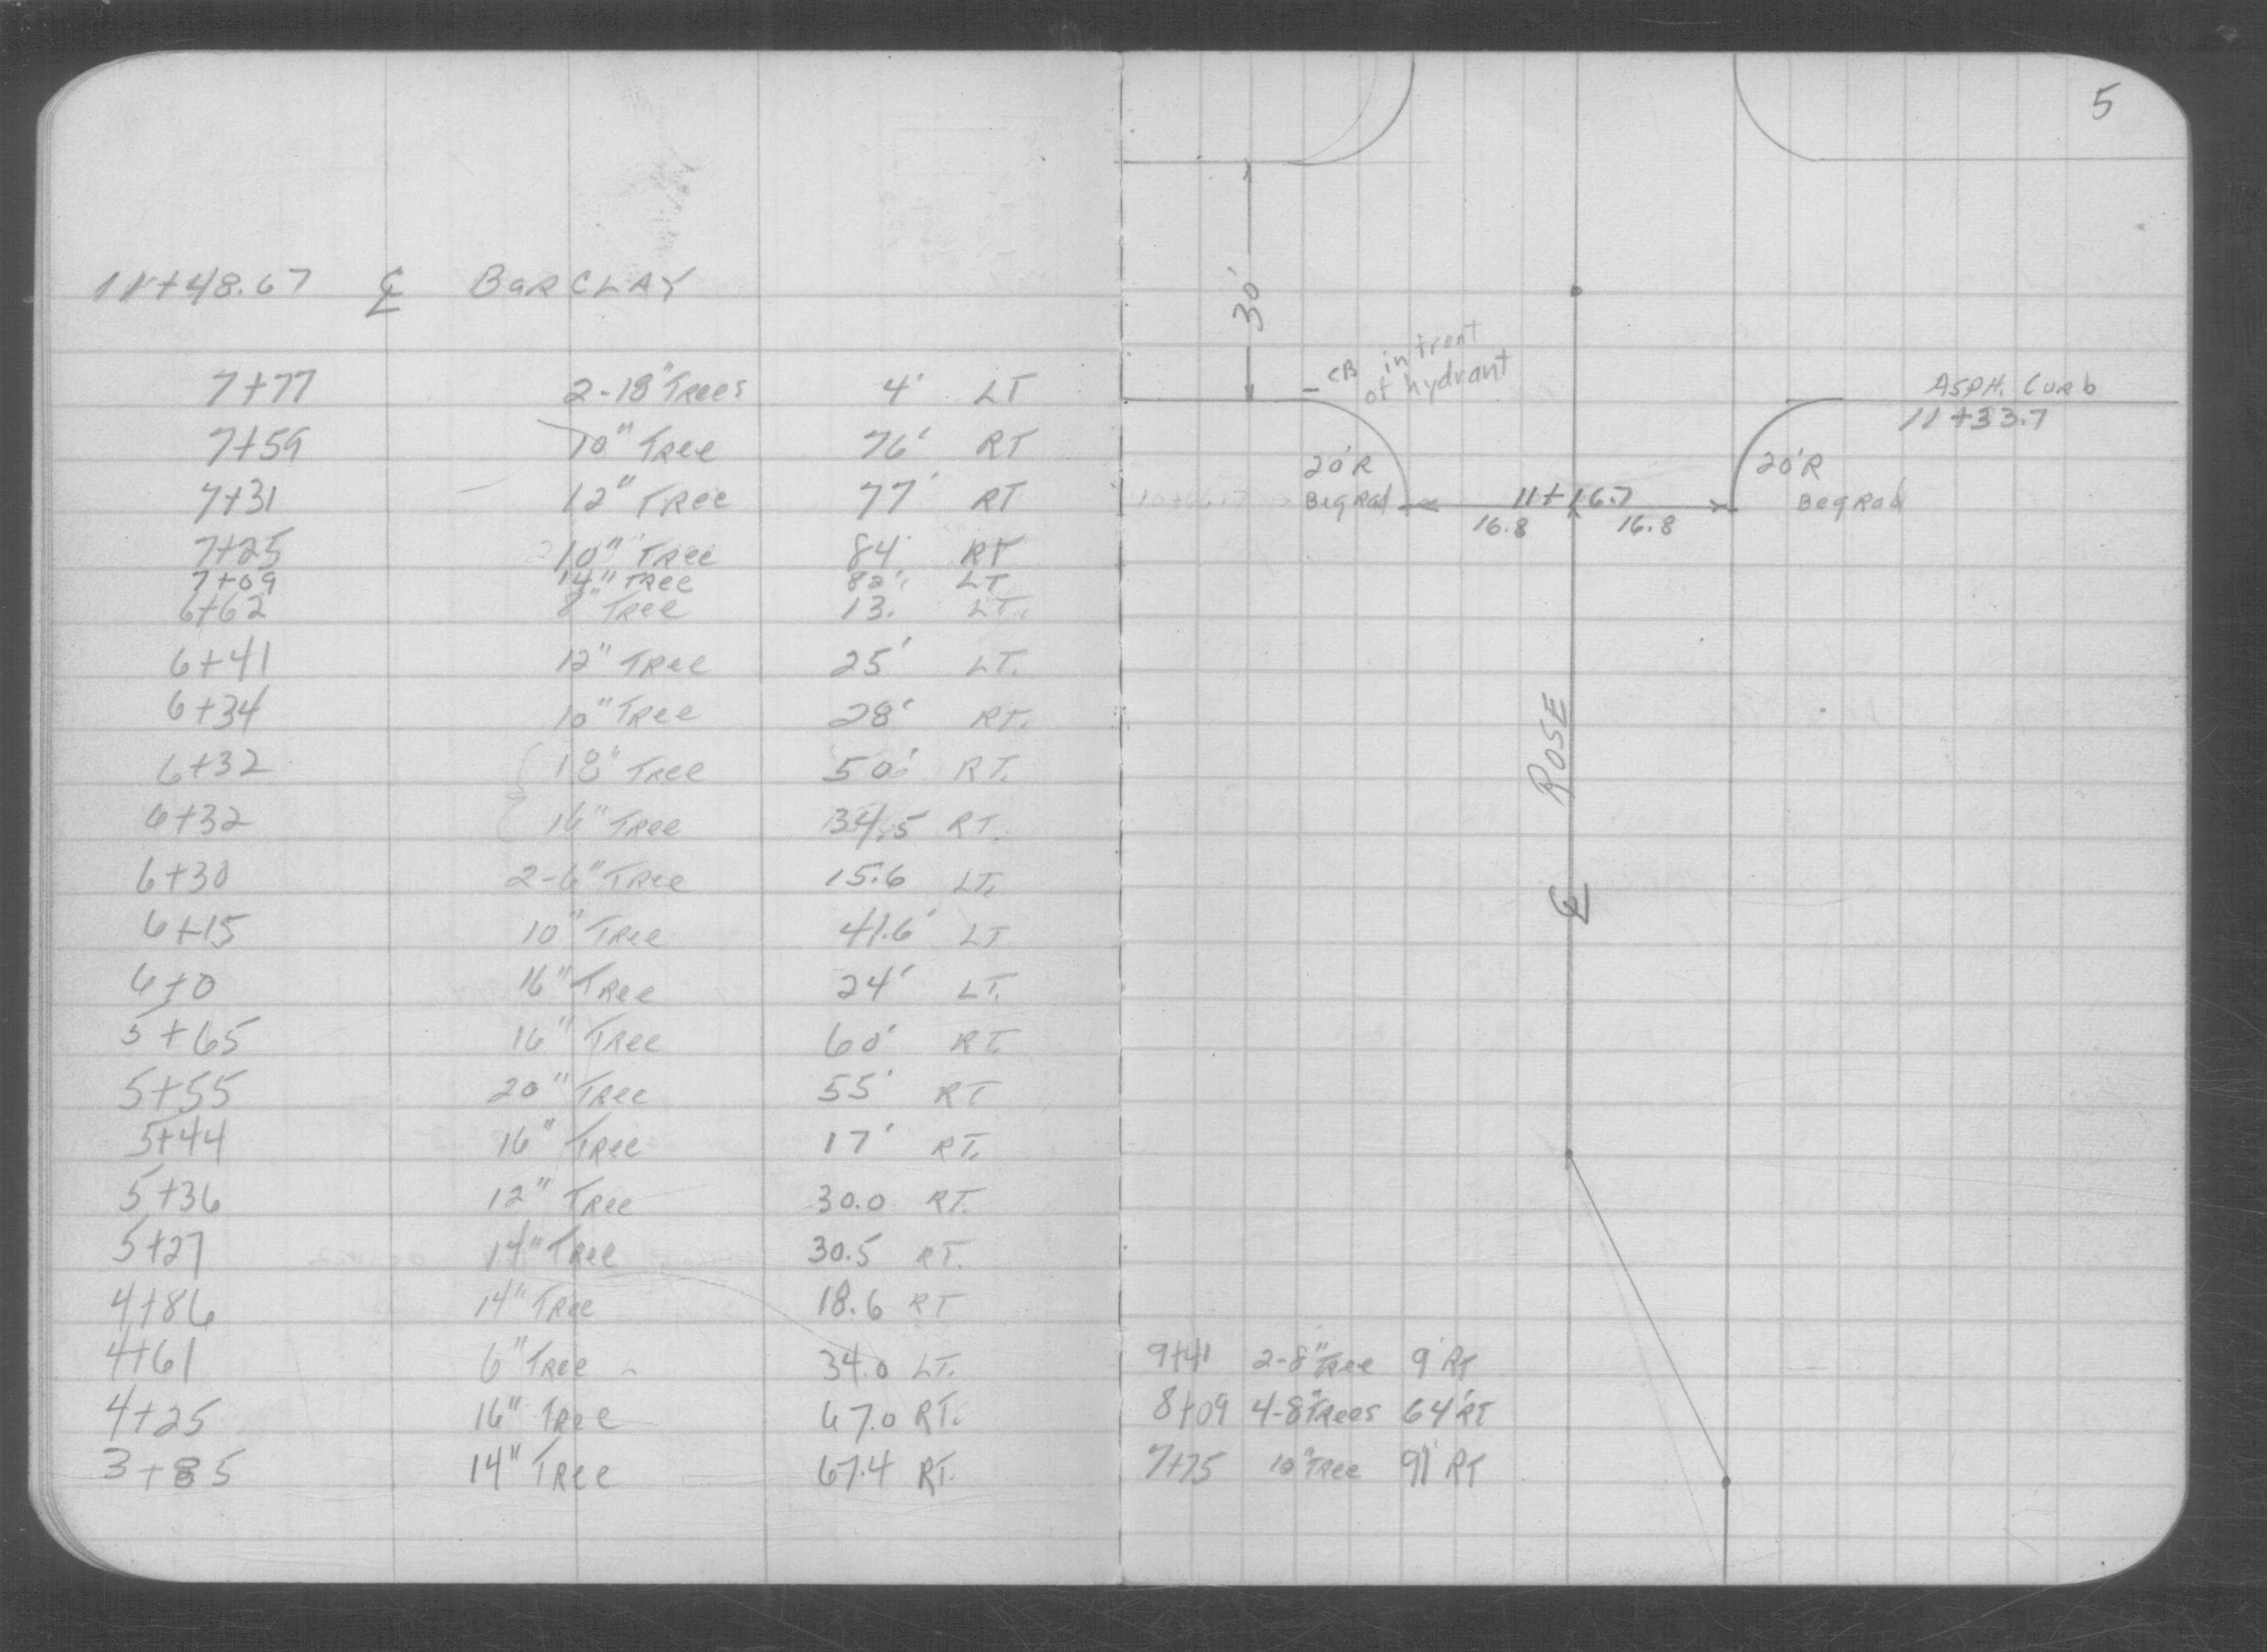 11+48.67 ℄ BARCLAY
7+77 2-18" Trees 4' LT
7+59 10" Tree 76' RT
7+31 12" Tree 77' RT
7+25 10" Tree 84' RT
7+09 14" Tree 82' LT
6+62 8" Tree 13. LT.
6+41 12" Tree 25' LT.
6+34 10" Tree 28' RT.
6+32 18" Tree 50' RT.
6+32 16" Tree 34.5 RT.
6+30 2-6" Tree 15.6 LT.
6+15 10" Tree 41.6' LT
6+0 16" Tree 24' LT.
5+65 16" Tree 60' RT.
5+55 20" Tree 55' RT
5+44 16" Tree 17' RT.
5+36 12" Tree 30.0 RT.
5+27 14" Tree 30.5 RT.
4+86 14" Tree 18.6 RT
4+61 6" Tree 34.0 LT.
4+25 16" Tree 67.0 RT.
3+85 14" Tree 67.4 RT.
5
30'
CB in front
of hydrant
ASPH. Curb
11+33.7
20'R
Beg Rad
11+16.7
16.8 16.8
20'R
Beg Rad
℄ ROSE
9+41 2-8" Tree 9' RT
8+09 4-8" Trees 64' RT
7+75 10" Tree 91' RT